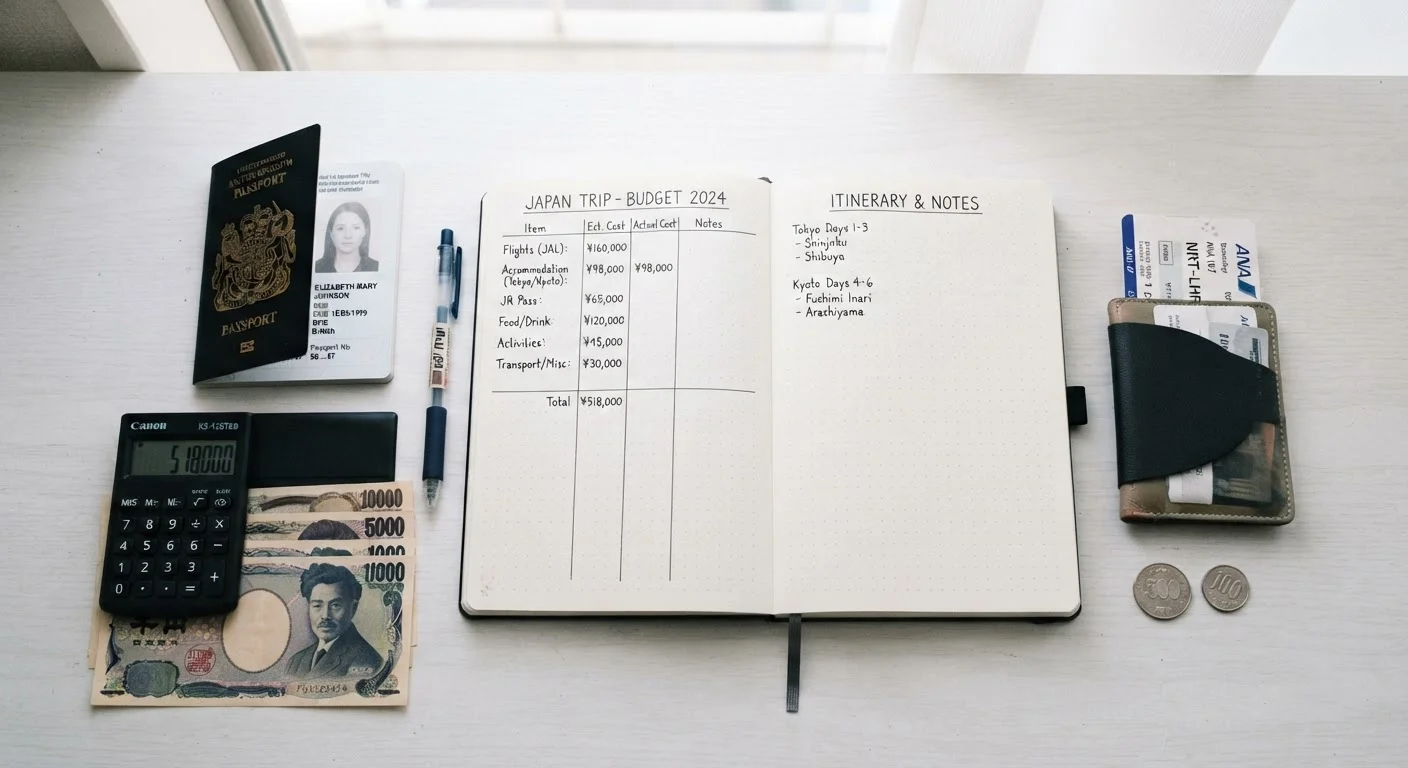 PASSPORT
PASSPORT
ELIZABETH MARY
JOHNSON
Canon
518000
7 8 9 ÷ X
4 5 6 6 −
1 2 3 3 +
0 · · =
10000
5000
1000
JAPAN TRIP - BUDGET 2024
Item Est. Cost Actual Cost Notes
Flights (JAL): ¥160,000
Accommodation ¥98,000 ¥98,000
(Tokyo/Kyoto):
JR Pass: ¥65,000
Food/Drink ¥120,000
Activities: ¥45,000
Transport/Misc: ¥30,000
Total ¥518,000
ITINERARY & NOTES
Tokyo Days 1-3
- Shinjuku
- Shibuya
Kyoto Days 4-6
- Fushimi Inari
- Arashiyama
ANA
NRT-LHR
500
100